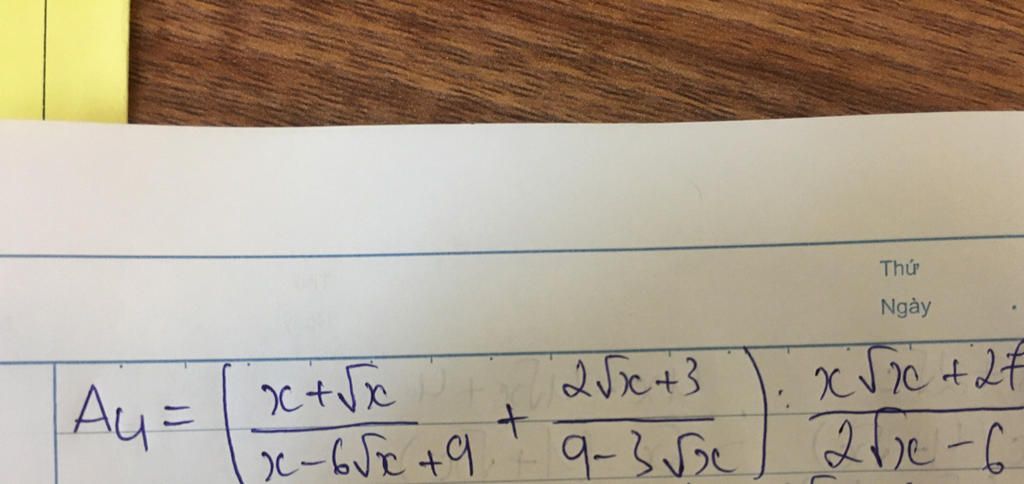 Thứ
Ngày
A4 = ( (x+√x)/(x-6√x+9) + (2√x+3)/(9-3√x) ) : (x√x+27)/(2√x-6)